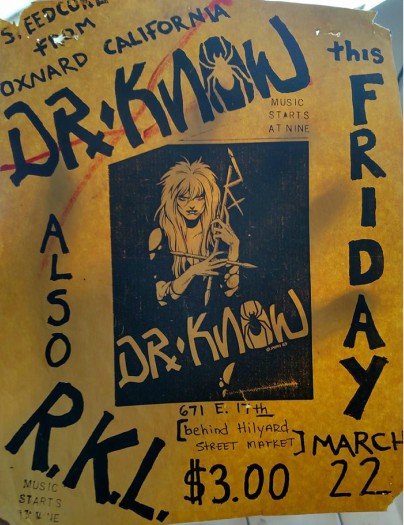 S.EEDCORE
FROM
OXNARD CALIFORNIA
DR. KNOW
MUSIC
STARTS
AT NINE
this
FRIDAY
MARCH
22
ALSO
R.K.L.
DR. KNOW
671 E. 17th
[behind Hilyard
STREET MARKET]
$3.00
MUSIC
STARTS